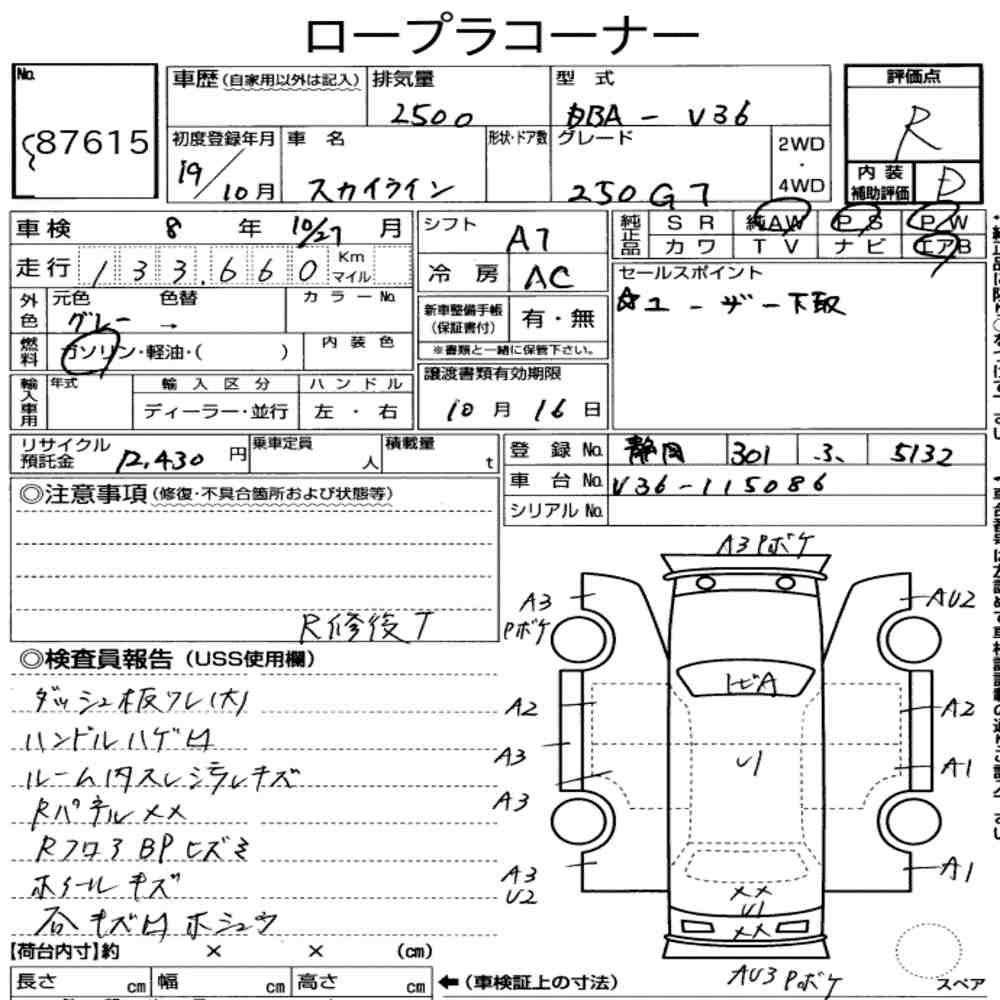 ロープラコーナー
No.
87615
車歴 (自家用以外は記入)
排気量
2500
型 式
DBA - V36
評価点
R
内装補助評価
D
初度登録年月
19/10月
車 名
スカイライン
形状・ドア数
グレード
250GT
2WD
・
4WD
車検 8 年 10/27 月
走行 133.660 Km マイル
外色
元色 色替
グレー →
カラーNo.
燃料
ガソリン・軽油・( )
内装色
輸入車用
年式
輸入区分
ハンドル
ディーラー・並行
左・右
シフト
AT
冷房
AC
新車整備手帳
(保証書付)
有・無
※書類と一緒に保管下さい。
譲渡書類有効期限
10月 16日
純正品
SR 純AW PS PW
カワ TV ナビ エアB
セールスポイント
☆ユーザー下取
リサイクル預託金 12,430 円
乗車定員
人
積載量
t
登録No. 静岡 301 る 5132
車台No. V36-115086
シリアルNo.
◎注意事項 (修復・不具合箇所および状態等)
R修後T
◎検査員報告 (USS使用欄)
ダッシュ板ワレ(大)
ハンドルハゲ凹
ルーム内スレシミヨゴレキズ
Rパネル××
Rフロア BPヒズミ
ホイールキズ
石キズ凹ホシュウ
【荷台内寸】約 × × (cm)
長さ cm 幅 cm 高さ cm
←(車検証上の寸法)
A3 Pボケ
A3
Pボケ
AU2
トビA
A2
A2
A3
U1
A1
A3
A3
U2
A1
××
U1
××
AU3 Pボケ
スペア